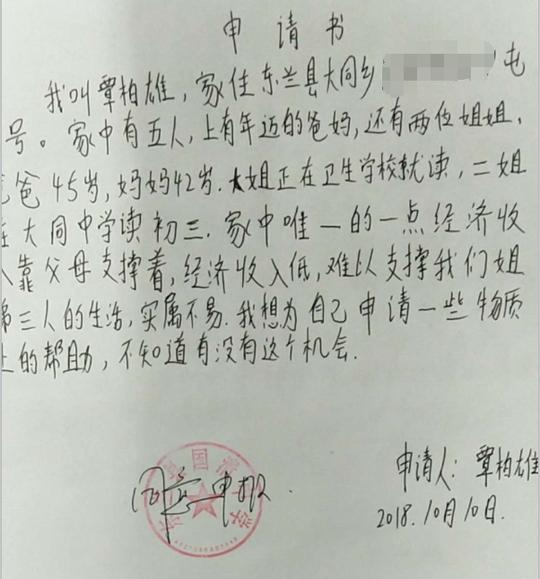 申请书
我叫覃柏雄，家住东兰县大同乡屯
号。家中有五人，上有年迈的爸妈，还有两位姐姐，
爸45岁，妈妈42岁。大姐正在卫生学校就读，二姐
在大同中学读初三。家中唯一的一点经济收
入靠父母支撑着，经济收入低，难以支撑我们姐
弟三人的生活，实属不易。我想为自己申请一些物质
上的帮助，不知道有没有这个机会。
申请人：覃柏雄
2018.10月10日.
同意申报.
国